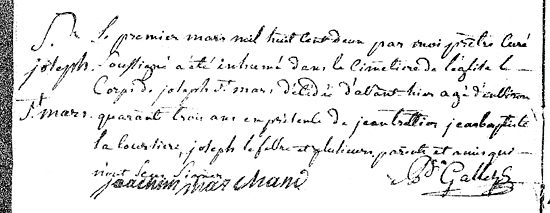 S.re Le premier mars mil huit cent deux par moi prêtre Curé
joseph Soussigné a été inhumé dans le Cimetiere de l'église le
Corps de joseph St. mars décédé d'avant hier agé d'environ
St. mars quarant trois ans en présence de jean jean baptiste
la Coursiere, joseph lefebvre et plusieurs parents et amis qui
n'ont seus signer
joachim marchand